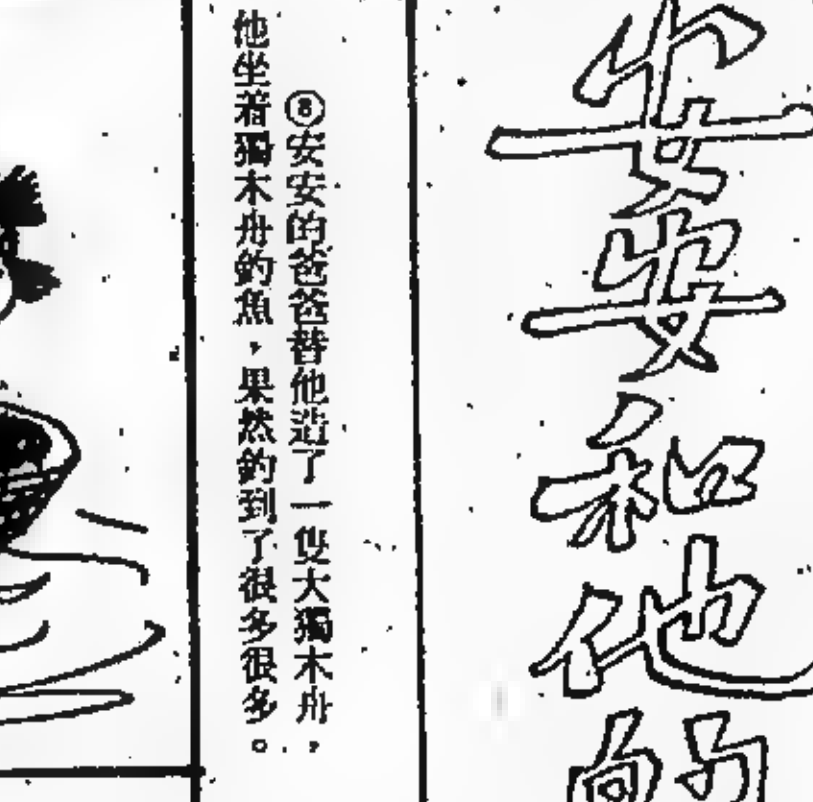 安安和他的
⑧安安的爸爸替他造了一隻大獨木舟，
他坐着獨木舟釣魚，果然釣到了很多很多。